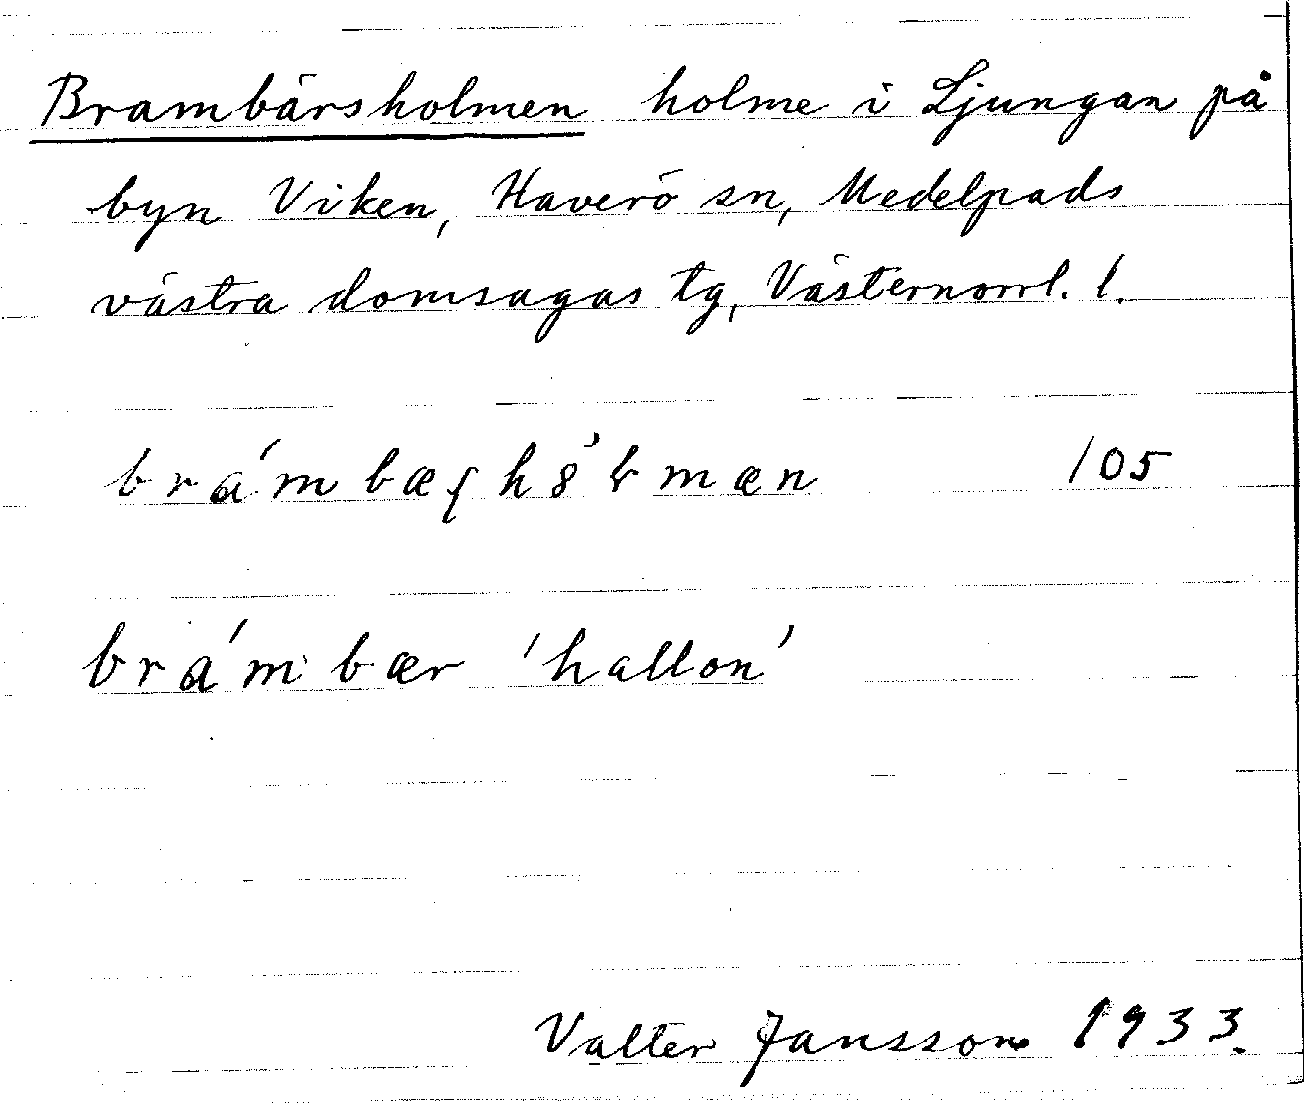 Brambärsholmen holme i Ljungan på
byn Viken, Haverö sn, Medelpads
västra domsagas tg, Västernorrl. l.
brámbæʂh8̀ɽmæn 105
brámbær 'hallon'
Valter Jansson 1933.